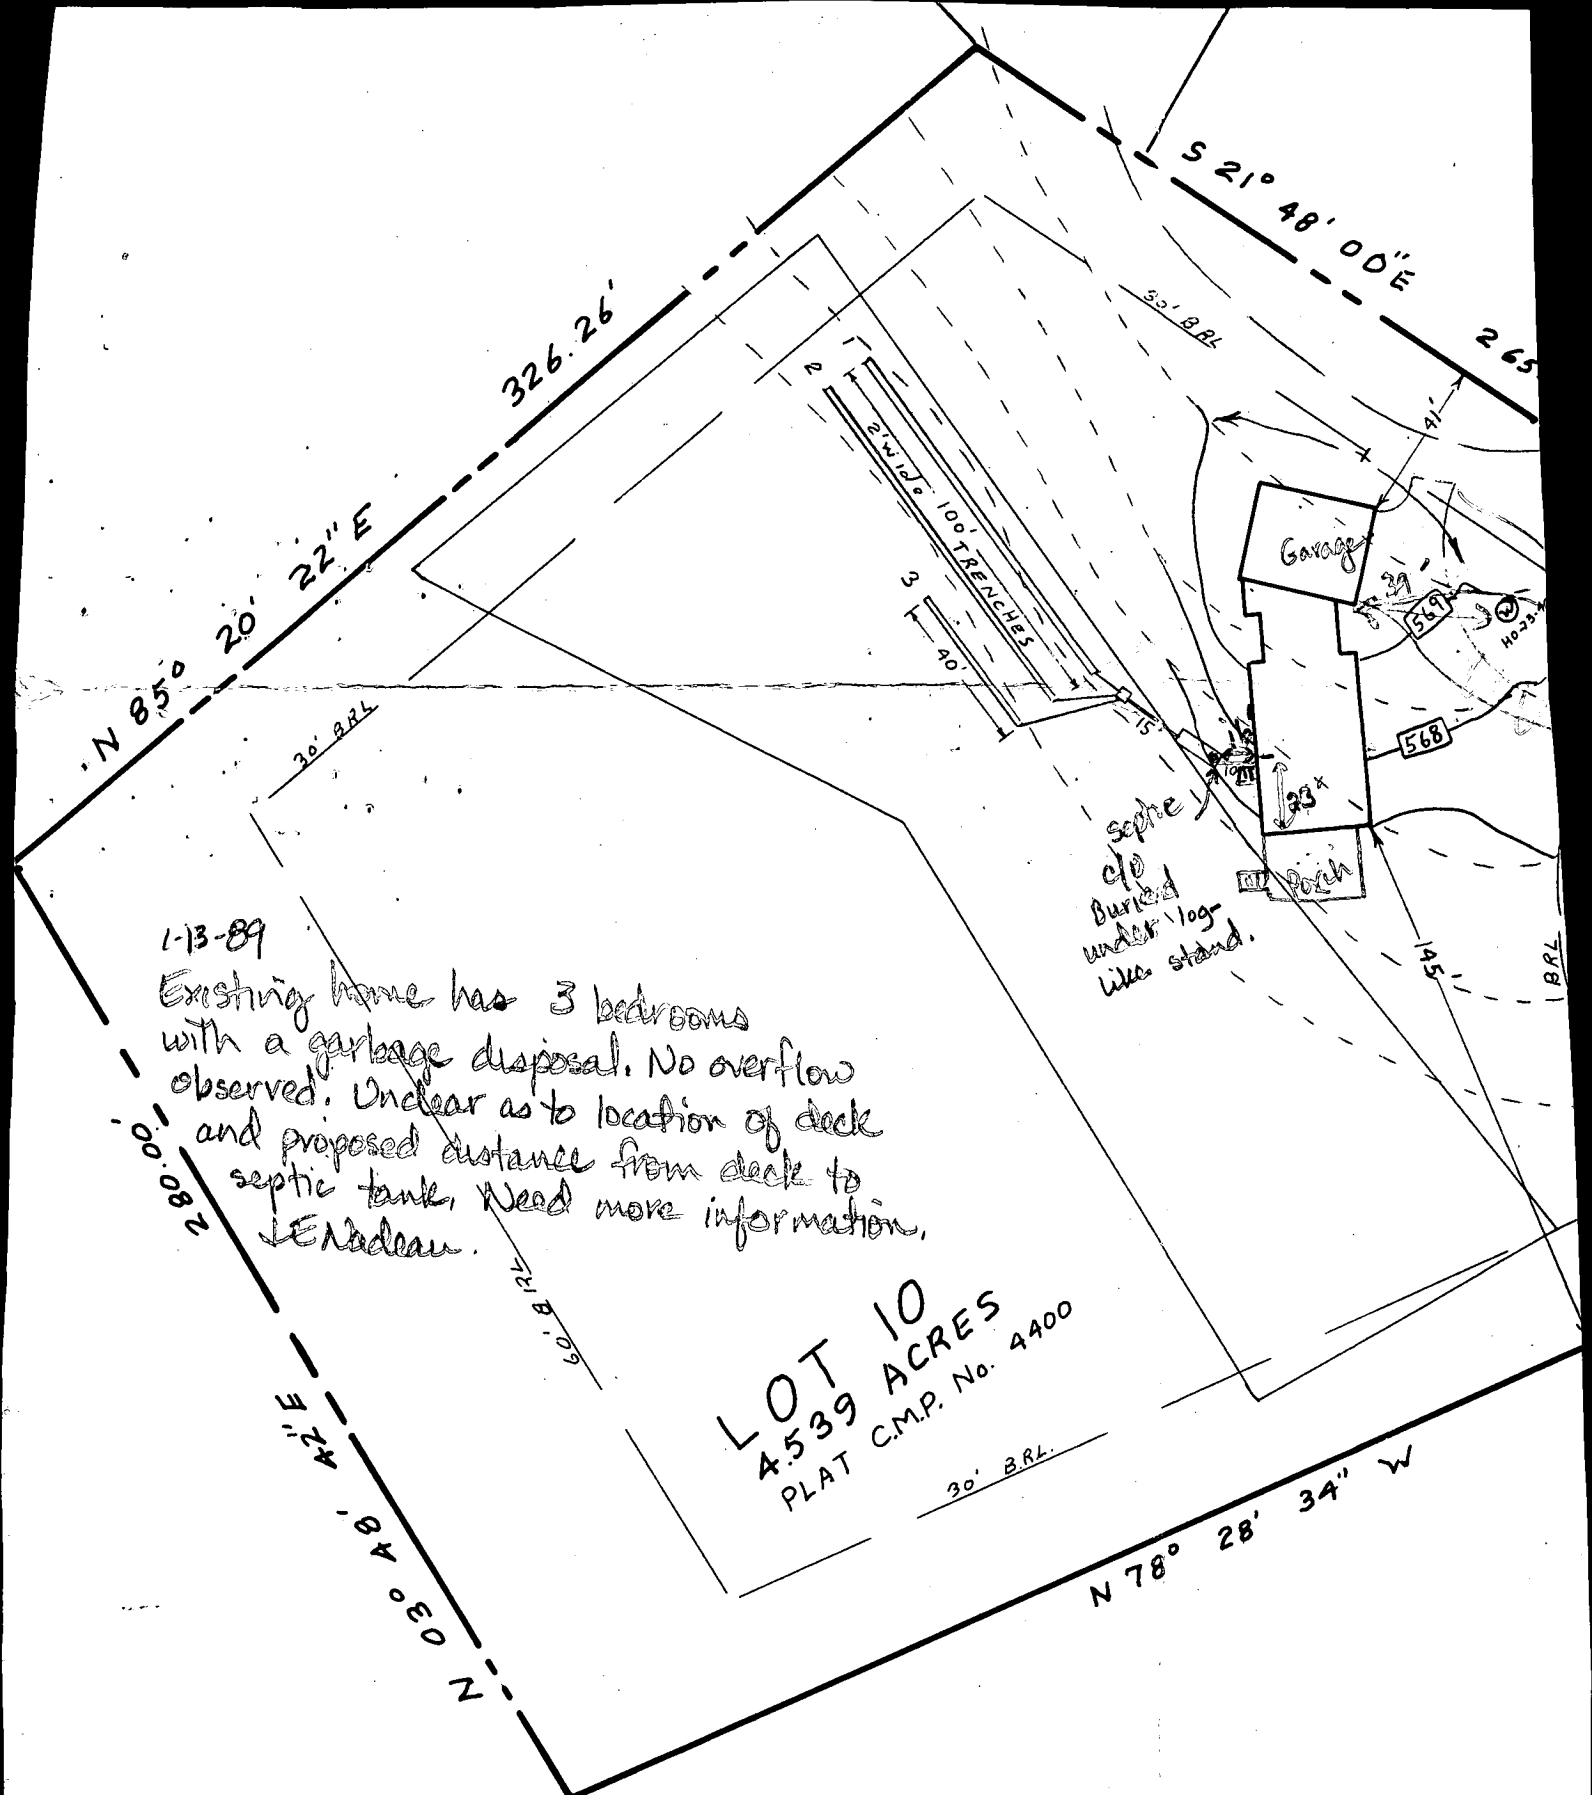 S 21° 48' 00" E
265.
326.26'
N 85° 20' 22" E
30' BRL
30' BRL
1
2
2' wide 100' TRENCHES
3
40'
15'
41'
Garage
39'
569
W
568
10'
23'
Septic
c/o
Buried
under log-
like stand.
Porch
145'
BRL
1-13-89
Existing home has 3 bedrooms
with a garbage disposal. No overflow
observed. Unclear as to location of deck
and proposed distance from deck to
septic tank. Need more information.
LENadeau.
280.00'
60' BRL
LOT 10
4.539 ACRES
PLAT C.M.P. No. 4400
30' B.RL.
N 03° 48' 42" E
N 78° 28' 34" W